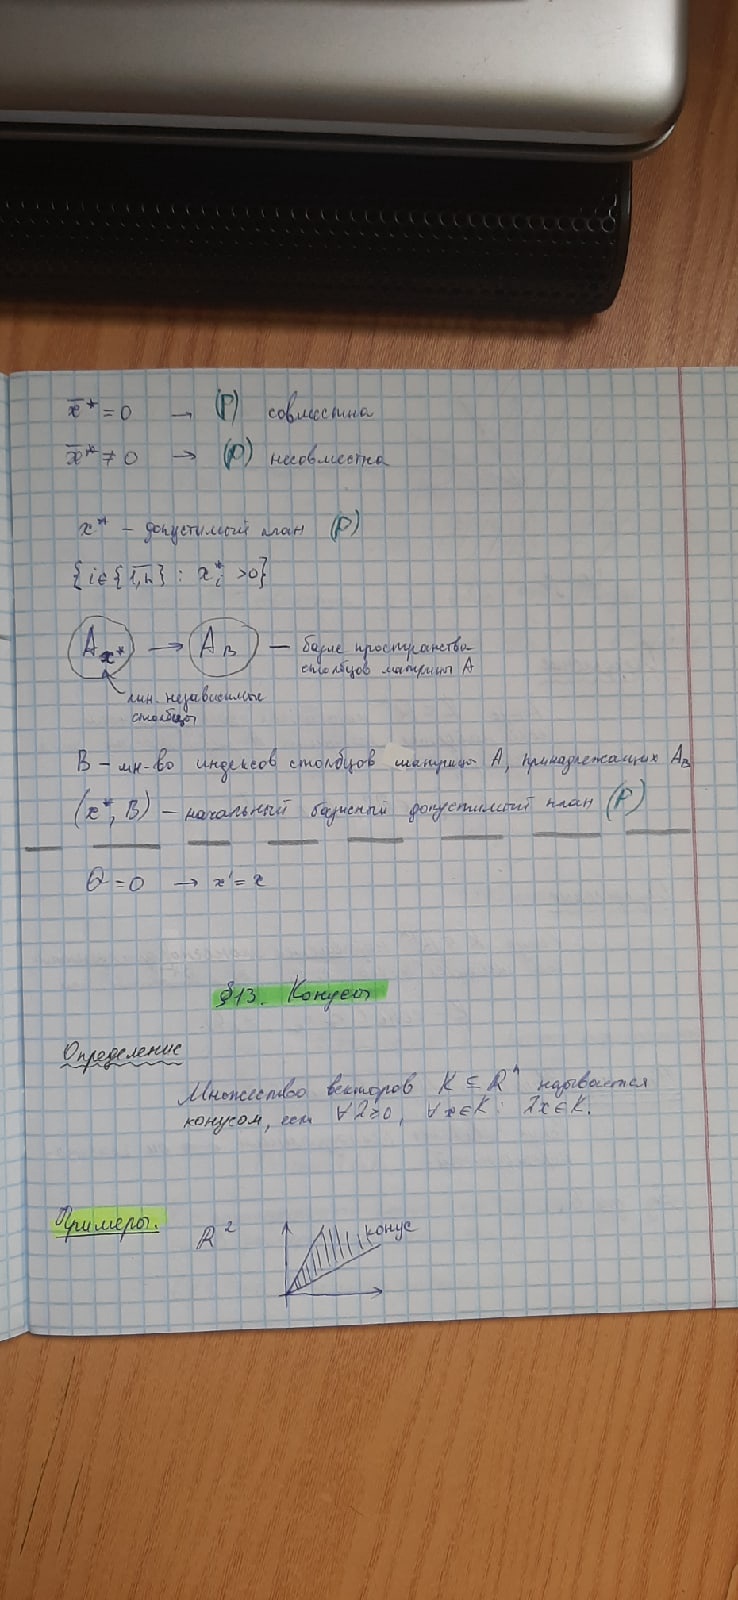 x̄* = 0 → (P) совместна
x̄* ≠ 0 → (P) несовместна
x* – допустимый план (P)
{i ∈ {1,n} : x*ᵢ > 0}
A_x* → A_B — базис пространства
столбцов матрицы A
лин. независимые
столбцы
B – мн-во индексов столбцов матрицы A, принадлежащих A_B
(x*, B) – начальный базисный допустимый план (P)
Θ = 0 → x' = x
§13. Конусы
Определение
Множество векторов K ⊆ Rⁿ называется
конусом, если ∀λ≥0, ∀x∈K: λx∈K.
Примеры.
R²
конус